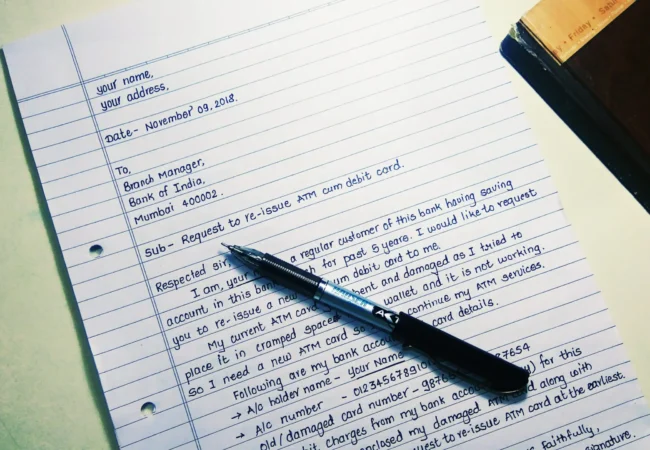 your name,
your address,
Date- November 09, 2018.
To,
Branch Manager,
Bank of India,
Mumbai 400002.
Sub- Request to re-issue ATM cum debit card.
Respected sir,
I am, your a regular customer of this bank having saving
account in this bank for past 5 years. I would like to request
you to re-issue a new cum debit card to me.
My current ATM card bent and damaged as I tried to
place it in cramped space wallet and it is not working.
so I need a new ATM card so continue my ATM services.
Following are my bank card details.
→ A/c holder name - your Name
→ A/c number - 01234567891
Old/damaged card number - 987654
charges from my bank for this
enclosed my damaged along with
to re-issue ATM card at the earliest.
faithfully,
signature.
Friday